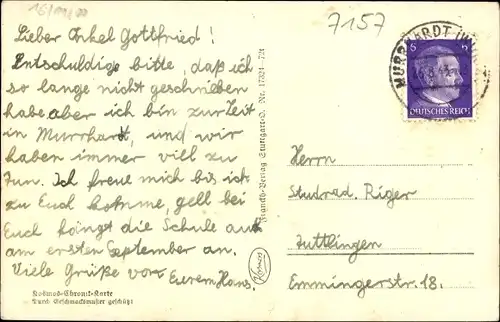 7157
Lieber Onkel Gottfried!
Entschuldige bitte, daß ich
so lange nicht geschrieben
habe aber ich bin zur Zeit
in Murrhardt, und wir
haben immer viel zu
Tun. Ich freue mich bis ich
zu Euch komme, gell bei
Euch fängt die Schule auch
am ersten September an.
Viele Grüße von Eurem Hans.
Kosmos-Chromt-Karte
Durch Geschmacksmuster geschützt
Franckh-Verlag Stuttgart-O. Nr. 17321-724
Kosmos
MURRHARDT
6
6
DEUTSCHES REICH
Herrn
Studrad. Riger
Tuttlingen
Emmingerstr. 18.